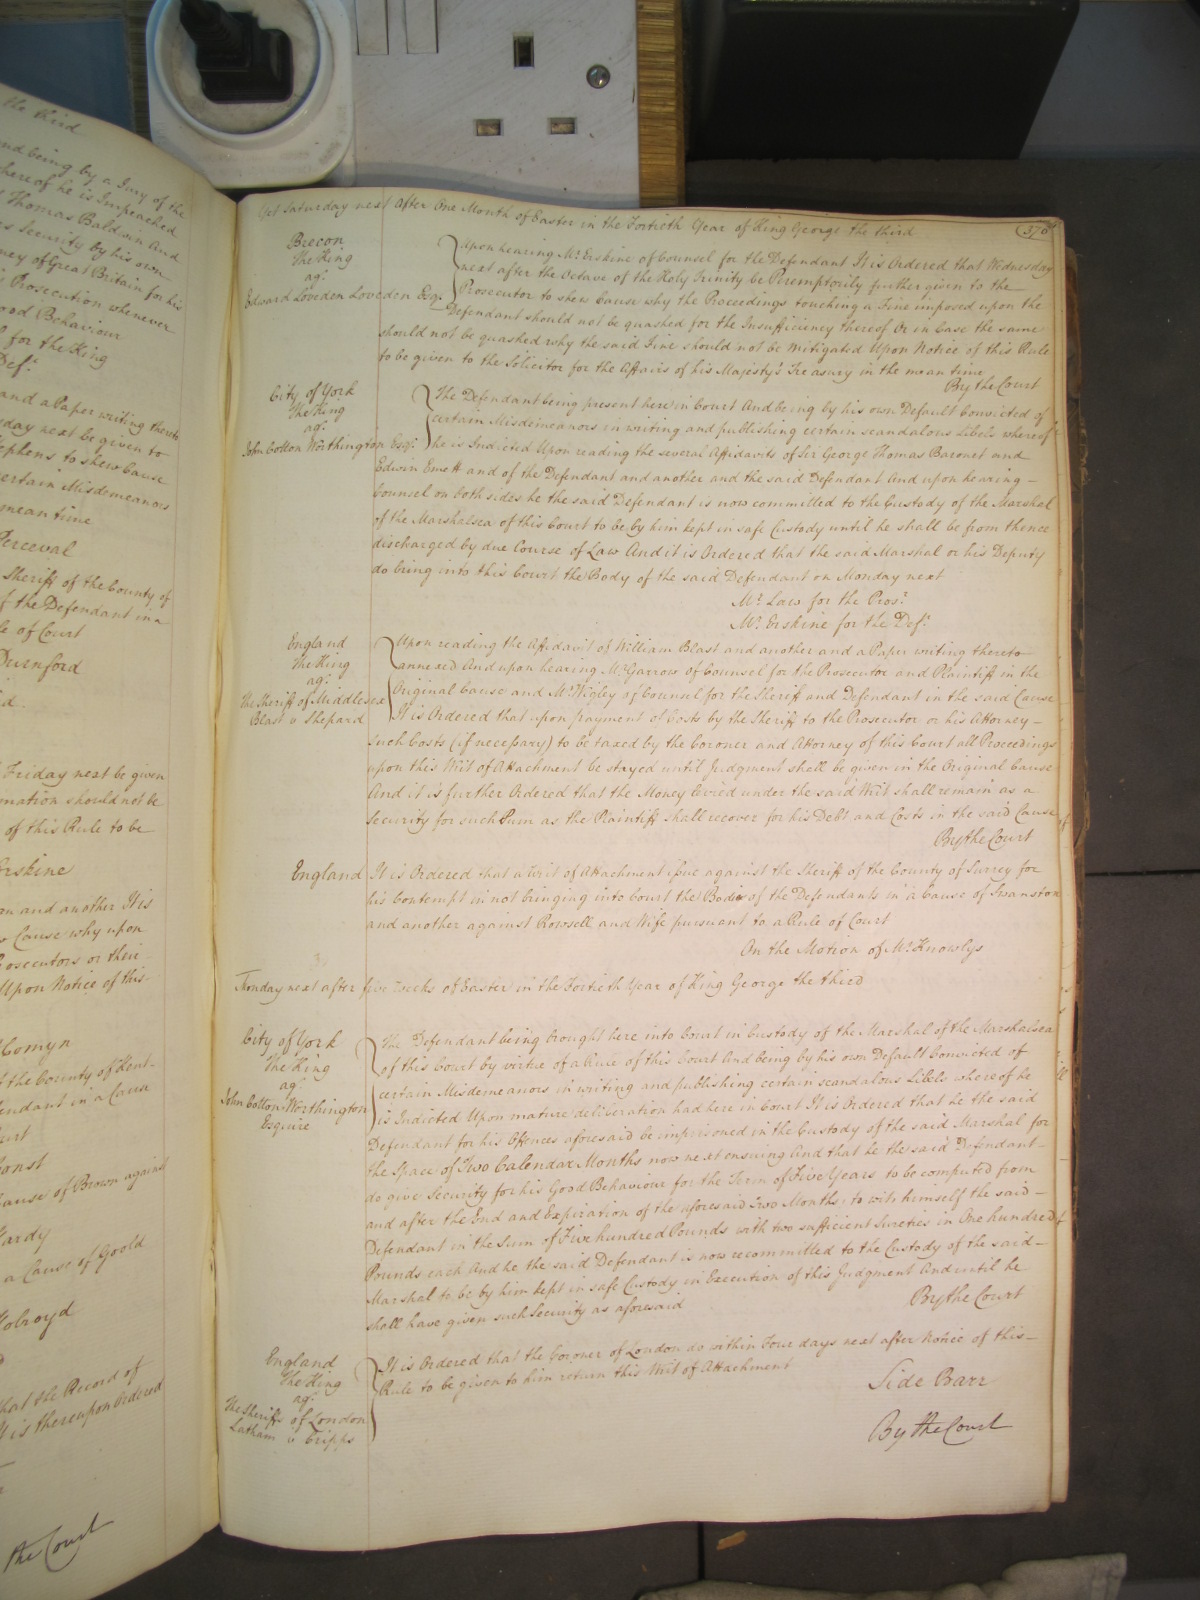 the third
and being by a Jury of the
whereof he is Impeached
Thomas Baldwin And
Security by his own
ney of Great Britain for his
Prosecution whenever
ood Behaviour
for the King
Def.t
and a Paper writing thereto
sday next be given to
ephens to shew Cause
certain Misdemeanors
mean time
Perceval
Sheriff of the County of
f the Defendant in a
le of Court
Durnford
Friday next be given
mation should not be
of this Rule to be
Erskine
an and another It is
Cause why upon
Prosecutors or their
Upon Notice of this
Comyn
f the County of Kent
endant in a Cause
ause of Brown against
Hardy
a Cause of Goold
Holroyd
that the Record of
It is thereupon Ordered
the Court
Yet Saturday next after One Month of Easter in the Fortieth Year of King George the third
376
Brecon
The King
ag.t
Edward Loveden Loveden Esq.r
Upon hearing Mr. Erskine of Counsel for the Defendant It is Ordered that Wednesday
next after the Octave of the Holy Trinity be Peremptorily further given to the
Prosecutor to shew Cause why the Proceedings touching a Fine imposed upon the
Defendant should not be quashed for the Insufficiency thereof Or in Case the same
should not be quashed why the said Fine should not be mitigated Upon Notice of this Rule
to be given to the Solicitor for the Affairs of his Majesty's Treasury in the mean time
By the Court
City of York
The King
ag.t
John Cotton Worthington Esq.r
The Defendant being present here in Court And being by his own Default Convicted of
certain Misdemeanors in writing and publishing certain scandalous Libels whereof
he is Indicted Upon reading the several Affidavits of Sir George Thomas Baronet and
Edwin Emett and of the Defendant and another and the said Defendant And upon hearing
Counsel on both sides he the said Defendant is now committed to the Custody of the Marshal
of the Marshalsea of this Court to be by him kept in safe Custody until he shall be from thence
discharged by due Course of Law And it is Ordered that the said Marshal or his Deputy
do bring into this Court the Body of the said Defendant on Monday next
Mr. Law for the Pros.r
Mr. Erskine for the Def.t
England
The King
ag.t
The Sheriff of Middlesex
Blast v Shepard
Upon reading the Affidavit of William Blast and another and a Paper writing thereto
annexed And upon hearing Mr. Garrow of Counsel for the Prosecutor and Plaintiff in the
Original Cause and Mr. Wigley of Counsel for the Sheriff and Defendant in the said Cause
It is Ordered that upon payment of Costs by the Sheriff to the Prosecutor or his Attorney
such Costs (if necessary) to be taxed by the Coroner and Attorney of this Court all Proceedings
upon this Writ of Attachment be stayed until Judgment shall be given in the Original Cause
And it is further Ordered that the Money levied under the said Writ shall remain as a
Security for such Sum as the Plaintiff shall recover for his Debt and Costs in the said Cause
By the Court
England It is Ordered that a Writ of Attachment issue against the Sheriff of the County of Surrey for
his Contempt in not bringing into Court the Bodies of the Defendants in a Cause of Swanston
and another against Rowsell and Wife pursuant to a Rule of Court
On the Motion of Mr. Knowlys
Monday next after five Weeks of Easter in the Fortieth Year of King George the third
City of York
The King
ag.t
John Cotton Worthington
Esquire
The Defendant being brought here into Court in Custody of the Marshal of the Marshalsea
of this Court by virtue of a Rule of this Court And being by his own Default Convicted of
certain Misdemeanors in writing and publishing certain scandalous Libels whereof he
is Indicted Upon mature deliberation had here in Court It is Ordered that he the said
Defendant for his Offences aforesaid be imprisoned in the Custody of the said Marshal for
the Space of Two Calendar Months now next ensuing And that he the said Defendant
do give Security for his Good Behaviour for the Term of Five Years to be computed from
and after the End and Expiration of the aforesaid Two Months, to wit himself the said
Defendant in the Sum of Five hundred Pounds with two sufficient Sureties in One hundred
Pounds each And he the said Defendant is now recommitted to the Custody of the said
Marshal to be by him kept in safe Custody in Execution of this Judgment And until he
shall have given such Security as aforesaid
By the Court
England
The King
ag.t
The Sheriffs of London
Latham v Cripps
It is Ordered that the Coroner of London do within Four days next after Notice of this
Rule to be given to him return this Writ of Attachment
Side Barr
By the Court